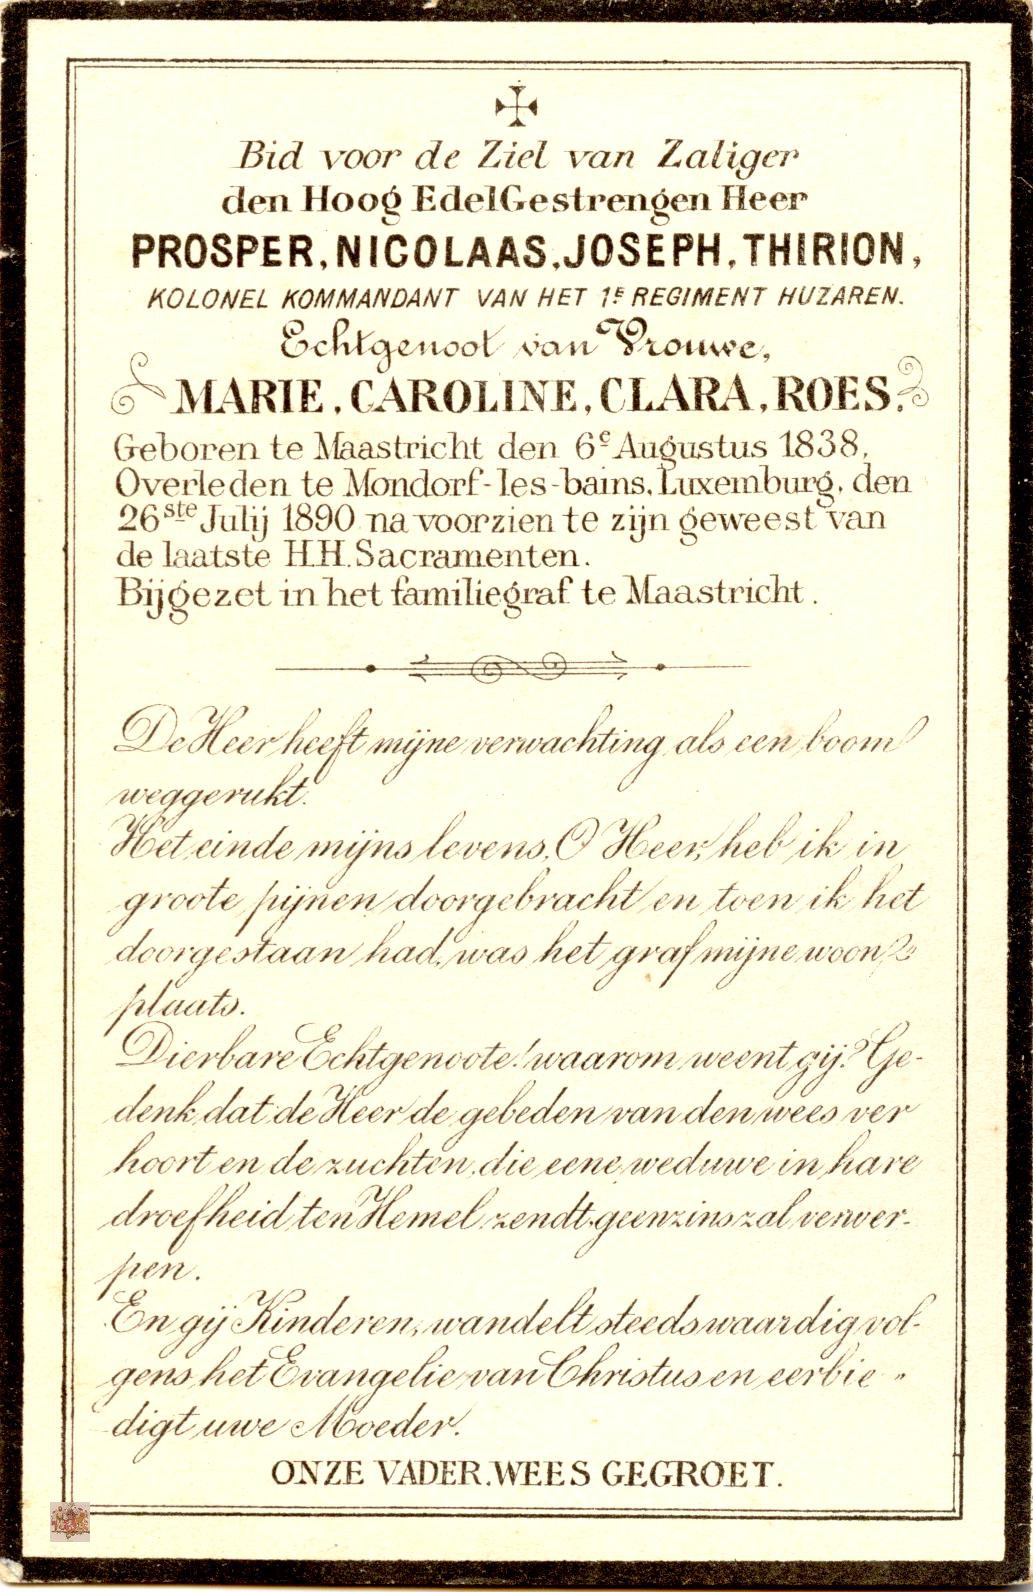 Bid voor de Ziel van Zaliger
den Hoog EdelGestrengen Heer
PROSPER, NICOLAAS, JOSEPH, THIRION,
KOLONEL KOMMANDANT VAN HET 1E REGIMENT HUZAREN.
Echtgenoot van Vrouwe,
MARIE, CAROLINE, CLARA, ROES.
Geboren te Maastricht den 6e Augustus 1838,
Overleden te Mondorf-les-bains, Luxemburg, den
26ste Julij 1890 na voorzien te zijn geweest van
de laatste H.H. Sacramenten.
Bijgezet in het familiegraf te Maastricht.
De Heer heeft mijne verwachting als een boom
weggerukt.
Het einde mijns levens, O Heer, heb ik in
groote pijnen doorgebracht en toen ik het
doorgestaan had, was het graf mijne woon
plaats.
Dierbare Echtgenoote! waarom weent gij? Ge-
denk dat de Heer de gebeden van den wees ver
hoort en de zuchten, die eene weduwe in hare
droefheid ten Hemel zendt, geenzins zal verwer-
pen.
En gij Kinderen, wandelt steeds waardig vol-
gens het Evangelie van Christus en eerbie-
digt uwe Moeder.
ONZE VADER. WEES GEGROET.